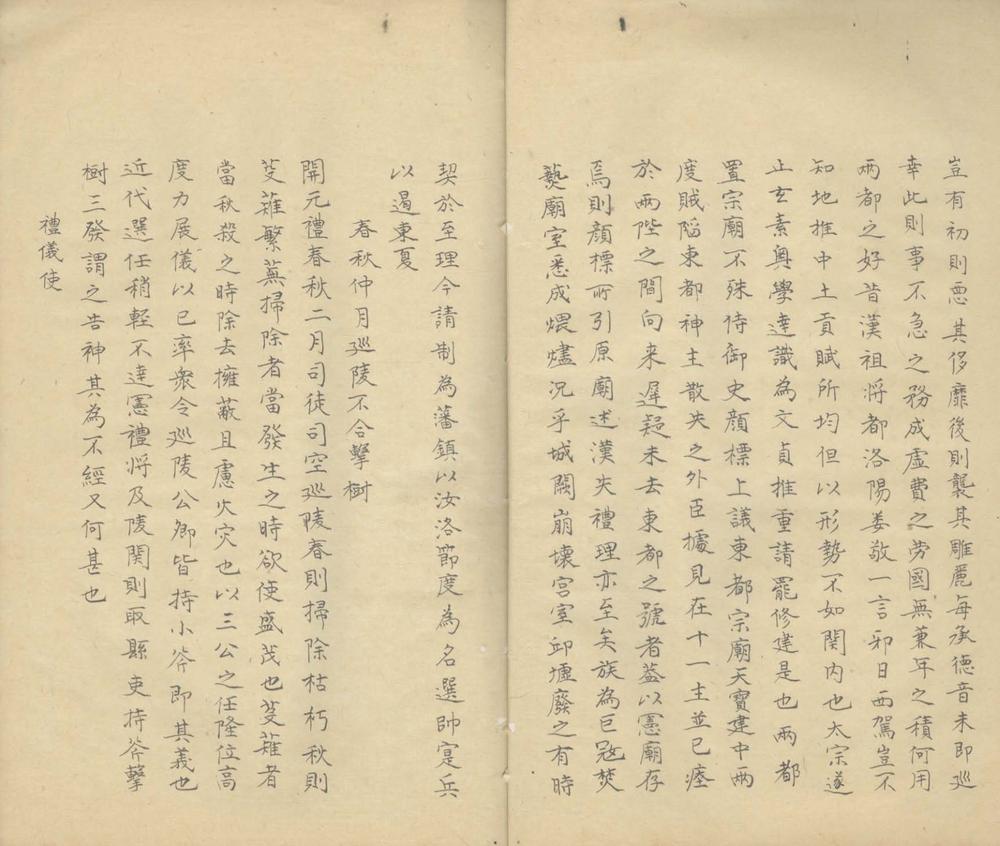 豈有初則惡其侈靡後則襲其雕麗每承德音未即巡
幸此則事不急之務成虛費之勞國無兼年之積何用
兩都之好昔漢祖將都洛陽婁敬一言邪日西駕豈不
知地推中土貢賦所均但以形勢不如関内也太宗遂
止玄素奧學達識為文貞推重請罷修建是也兩都
置宗廟不殊侍御史顔標上議東都宗廟天寶建中兩
度賊䧟東都神主散失之外臣據見在十一主並已瘞
於兩陛之間向来遲疑未去東都之號者葢以憲廟存
焉則顔標所引原廟述漢失禮理亦至矣族為巨冦焚
爇廟室悉成煨燼況乎城闕崩壊宫室邱墟廢之有時
契於至理今請制為藩鎮以汝洛節度為名選帥寔兵
以遏東夏
春秋仲月廵陵不合擊樹
開元禮春秋二月司徒司空廵陵春則掃除枯朽秋則
芟薙繁蕪掃除者當發生之時欲使盛茂也芟薙者
當秋殺之時除去擁蔽且慮火灾也以三公之任隆位高
度力展儀以已率衆令廵陵公卿皆持小斧即其義也
近代選任稍輕不達憲禮將及陵関則取縣吏持斧擊
樹三發謂之告神其為不經又何甚也
禮儀使